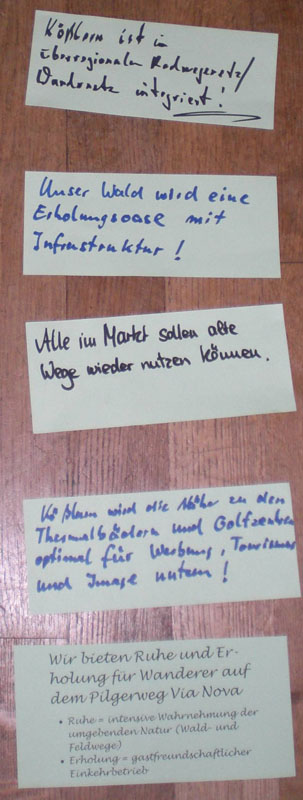 Kößlarn ist in
überregionalen Radwegenetz/
Wandernetz integriert!
Unser Wald wird eine
Erholungsoase mit
Infrastruktur!
Alle im Markt sollen alte
Wege wieder nutzen können.
Kößlarn wird die Nähe zu den
Thermalbädern und Golfzentren
optimal für Werbung, Tourismus
und Image nutzen!
Wir bieten Ruhe und Er-
holung für Wanderer auf
dem Pilgerweg Via Nova
• Ruhe = intensive Wahrnehmung der
umgebenden Natur (Wald- und
Feldwege)
• Erholung = gastfreundschaftlicher
Einkehrbetrieb